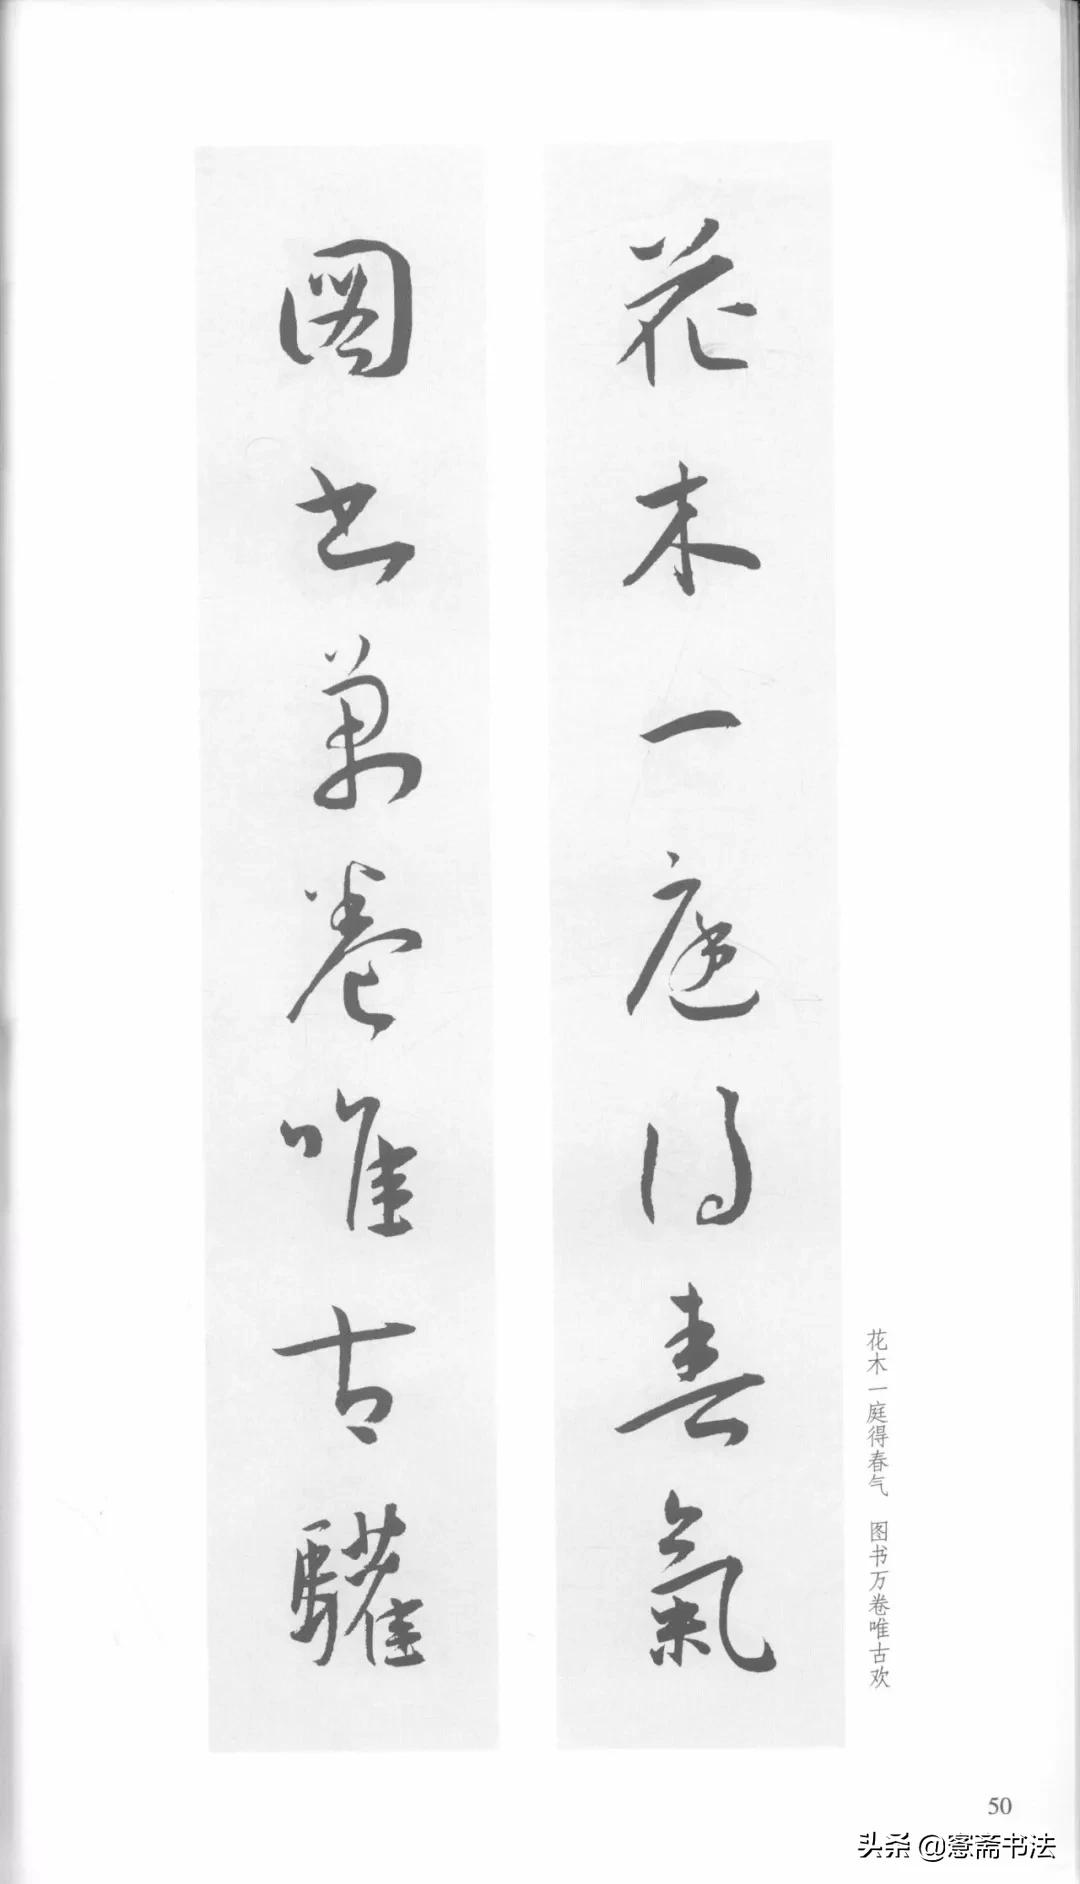 花木一庭得春氣
圖书萬卷唯古驩
花木一庭得春气 图书万卷唯古欢
50
头条 @窓斋书法